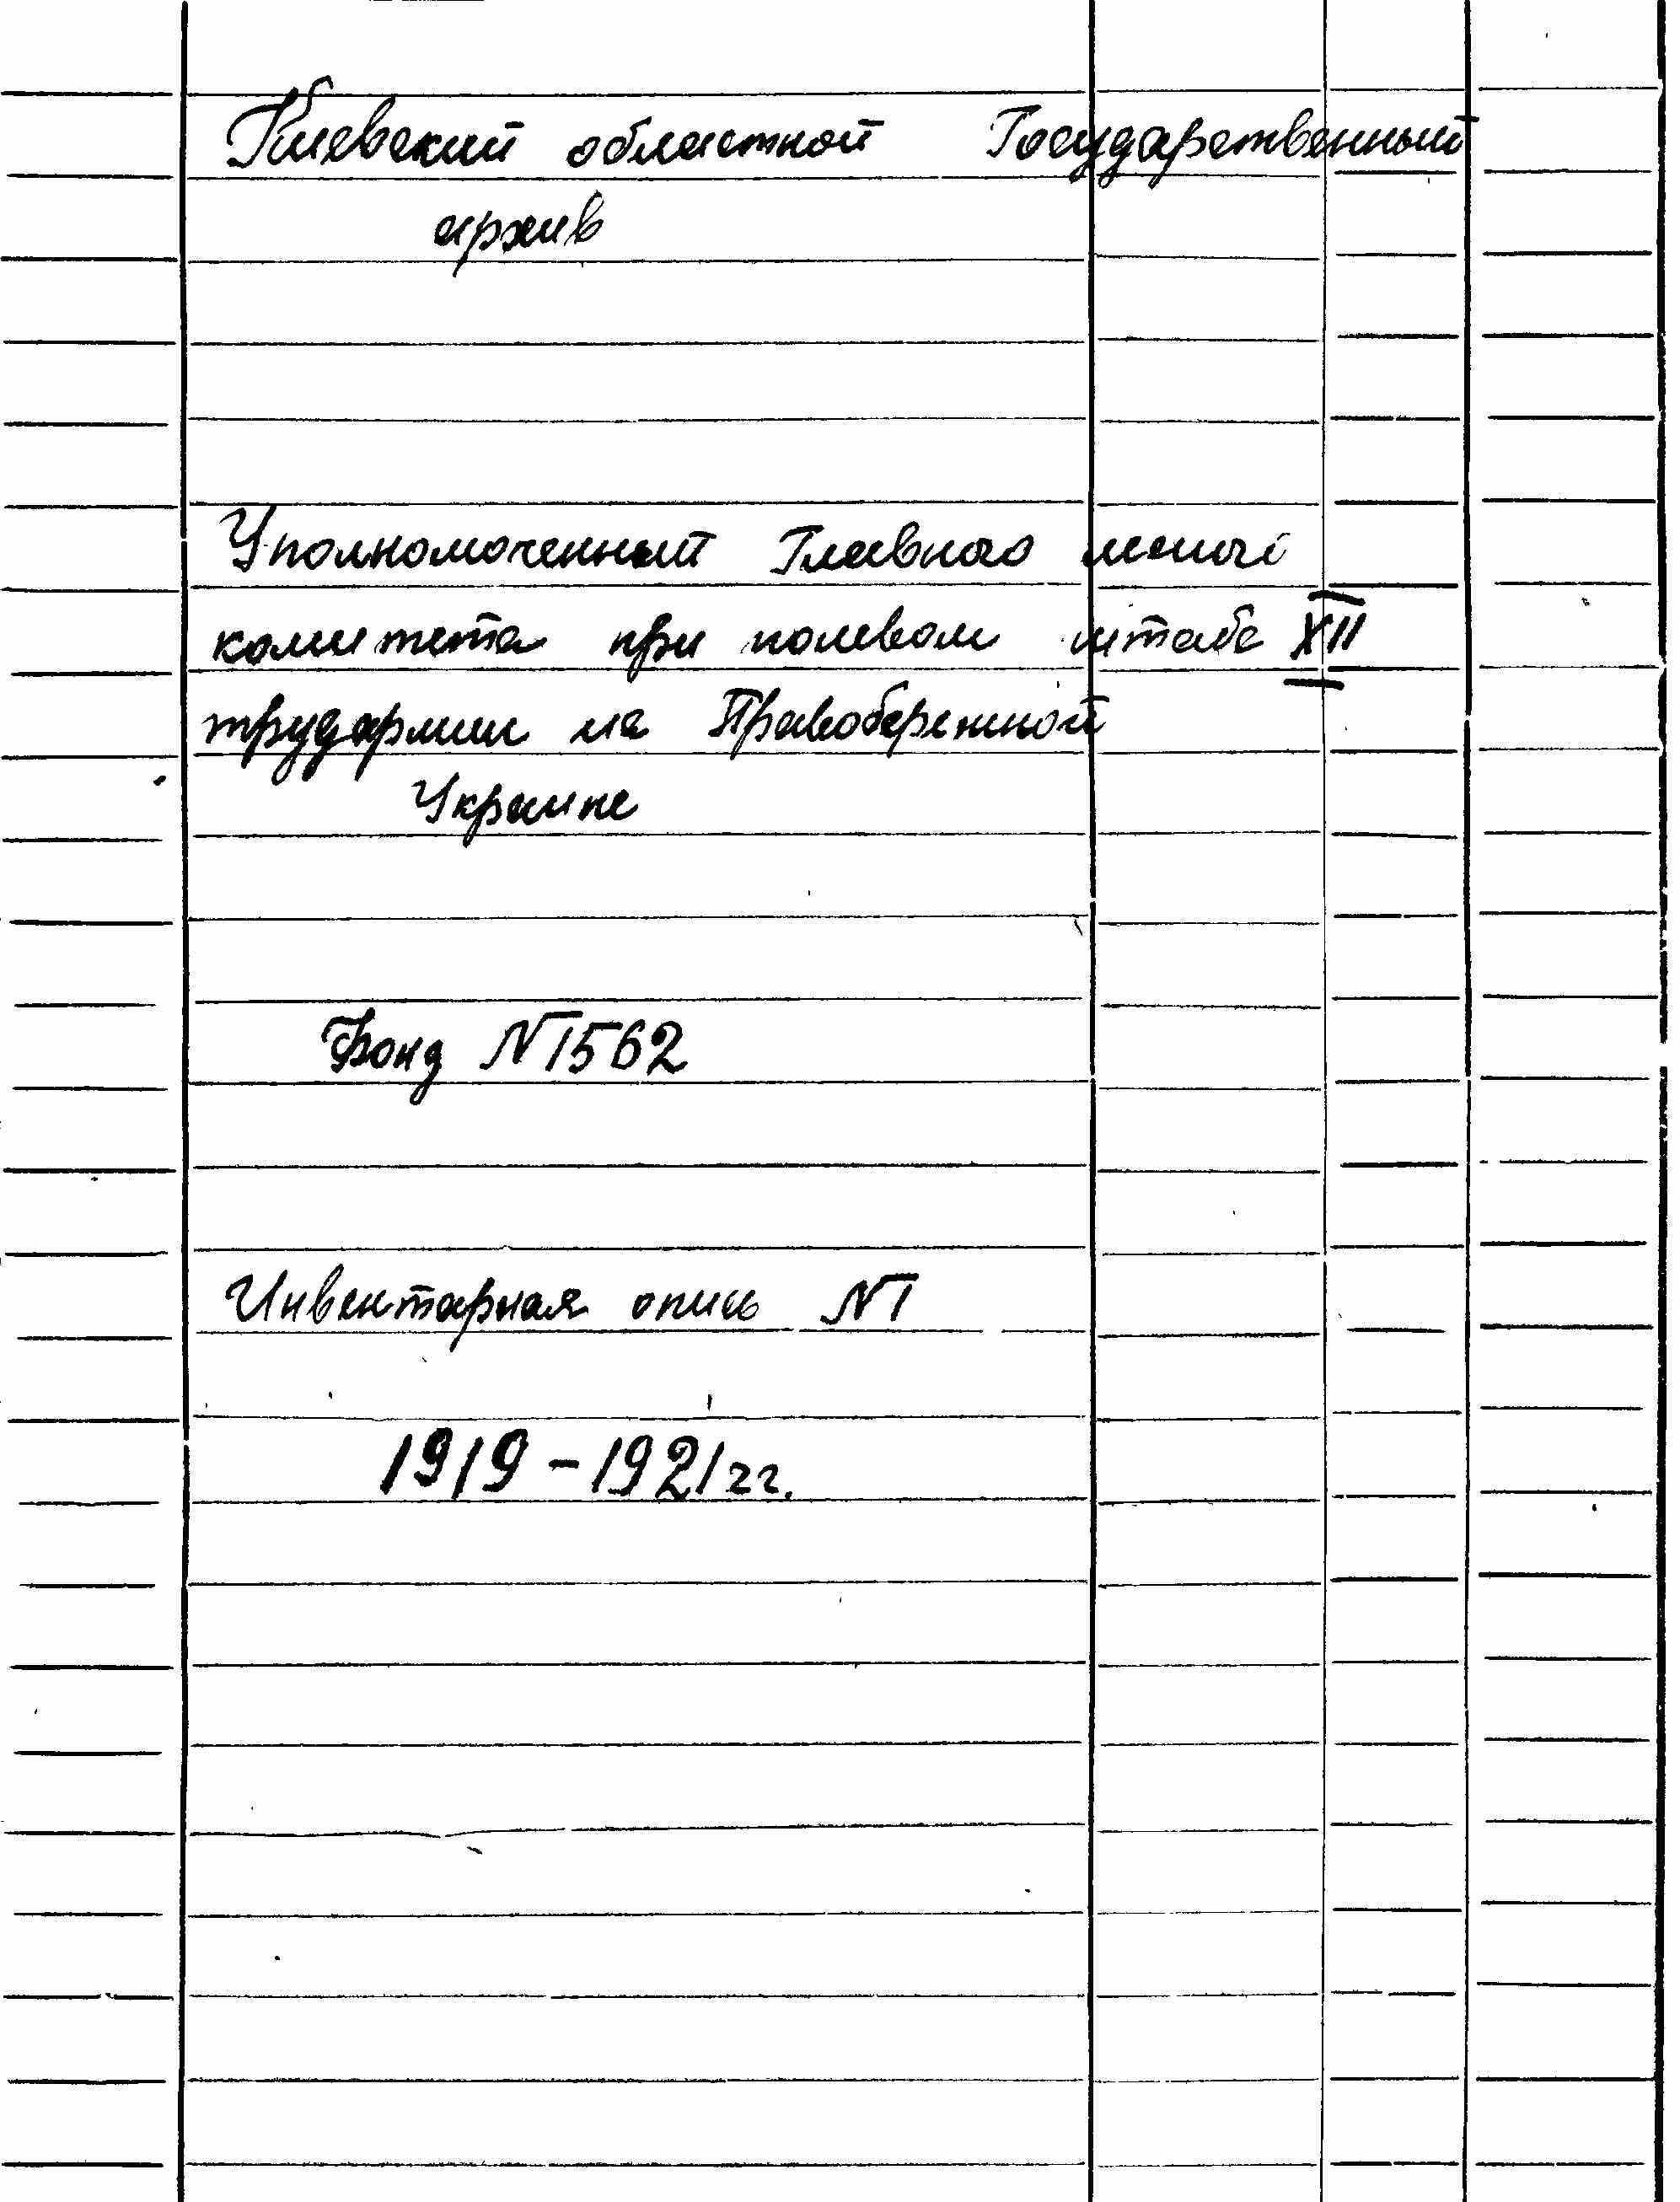 Киевский областной Государственный
архив
Уполномоченный Главного
комитета при полевом штабе XII
трудармии на Правобережной
Украине
Фонд №1562
Инвентарная опись №1
1919-1921гг.